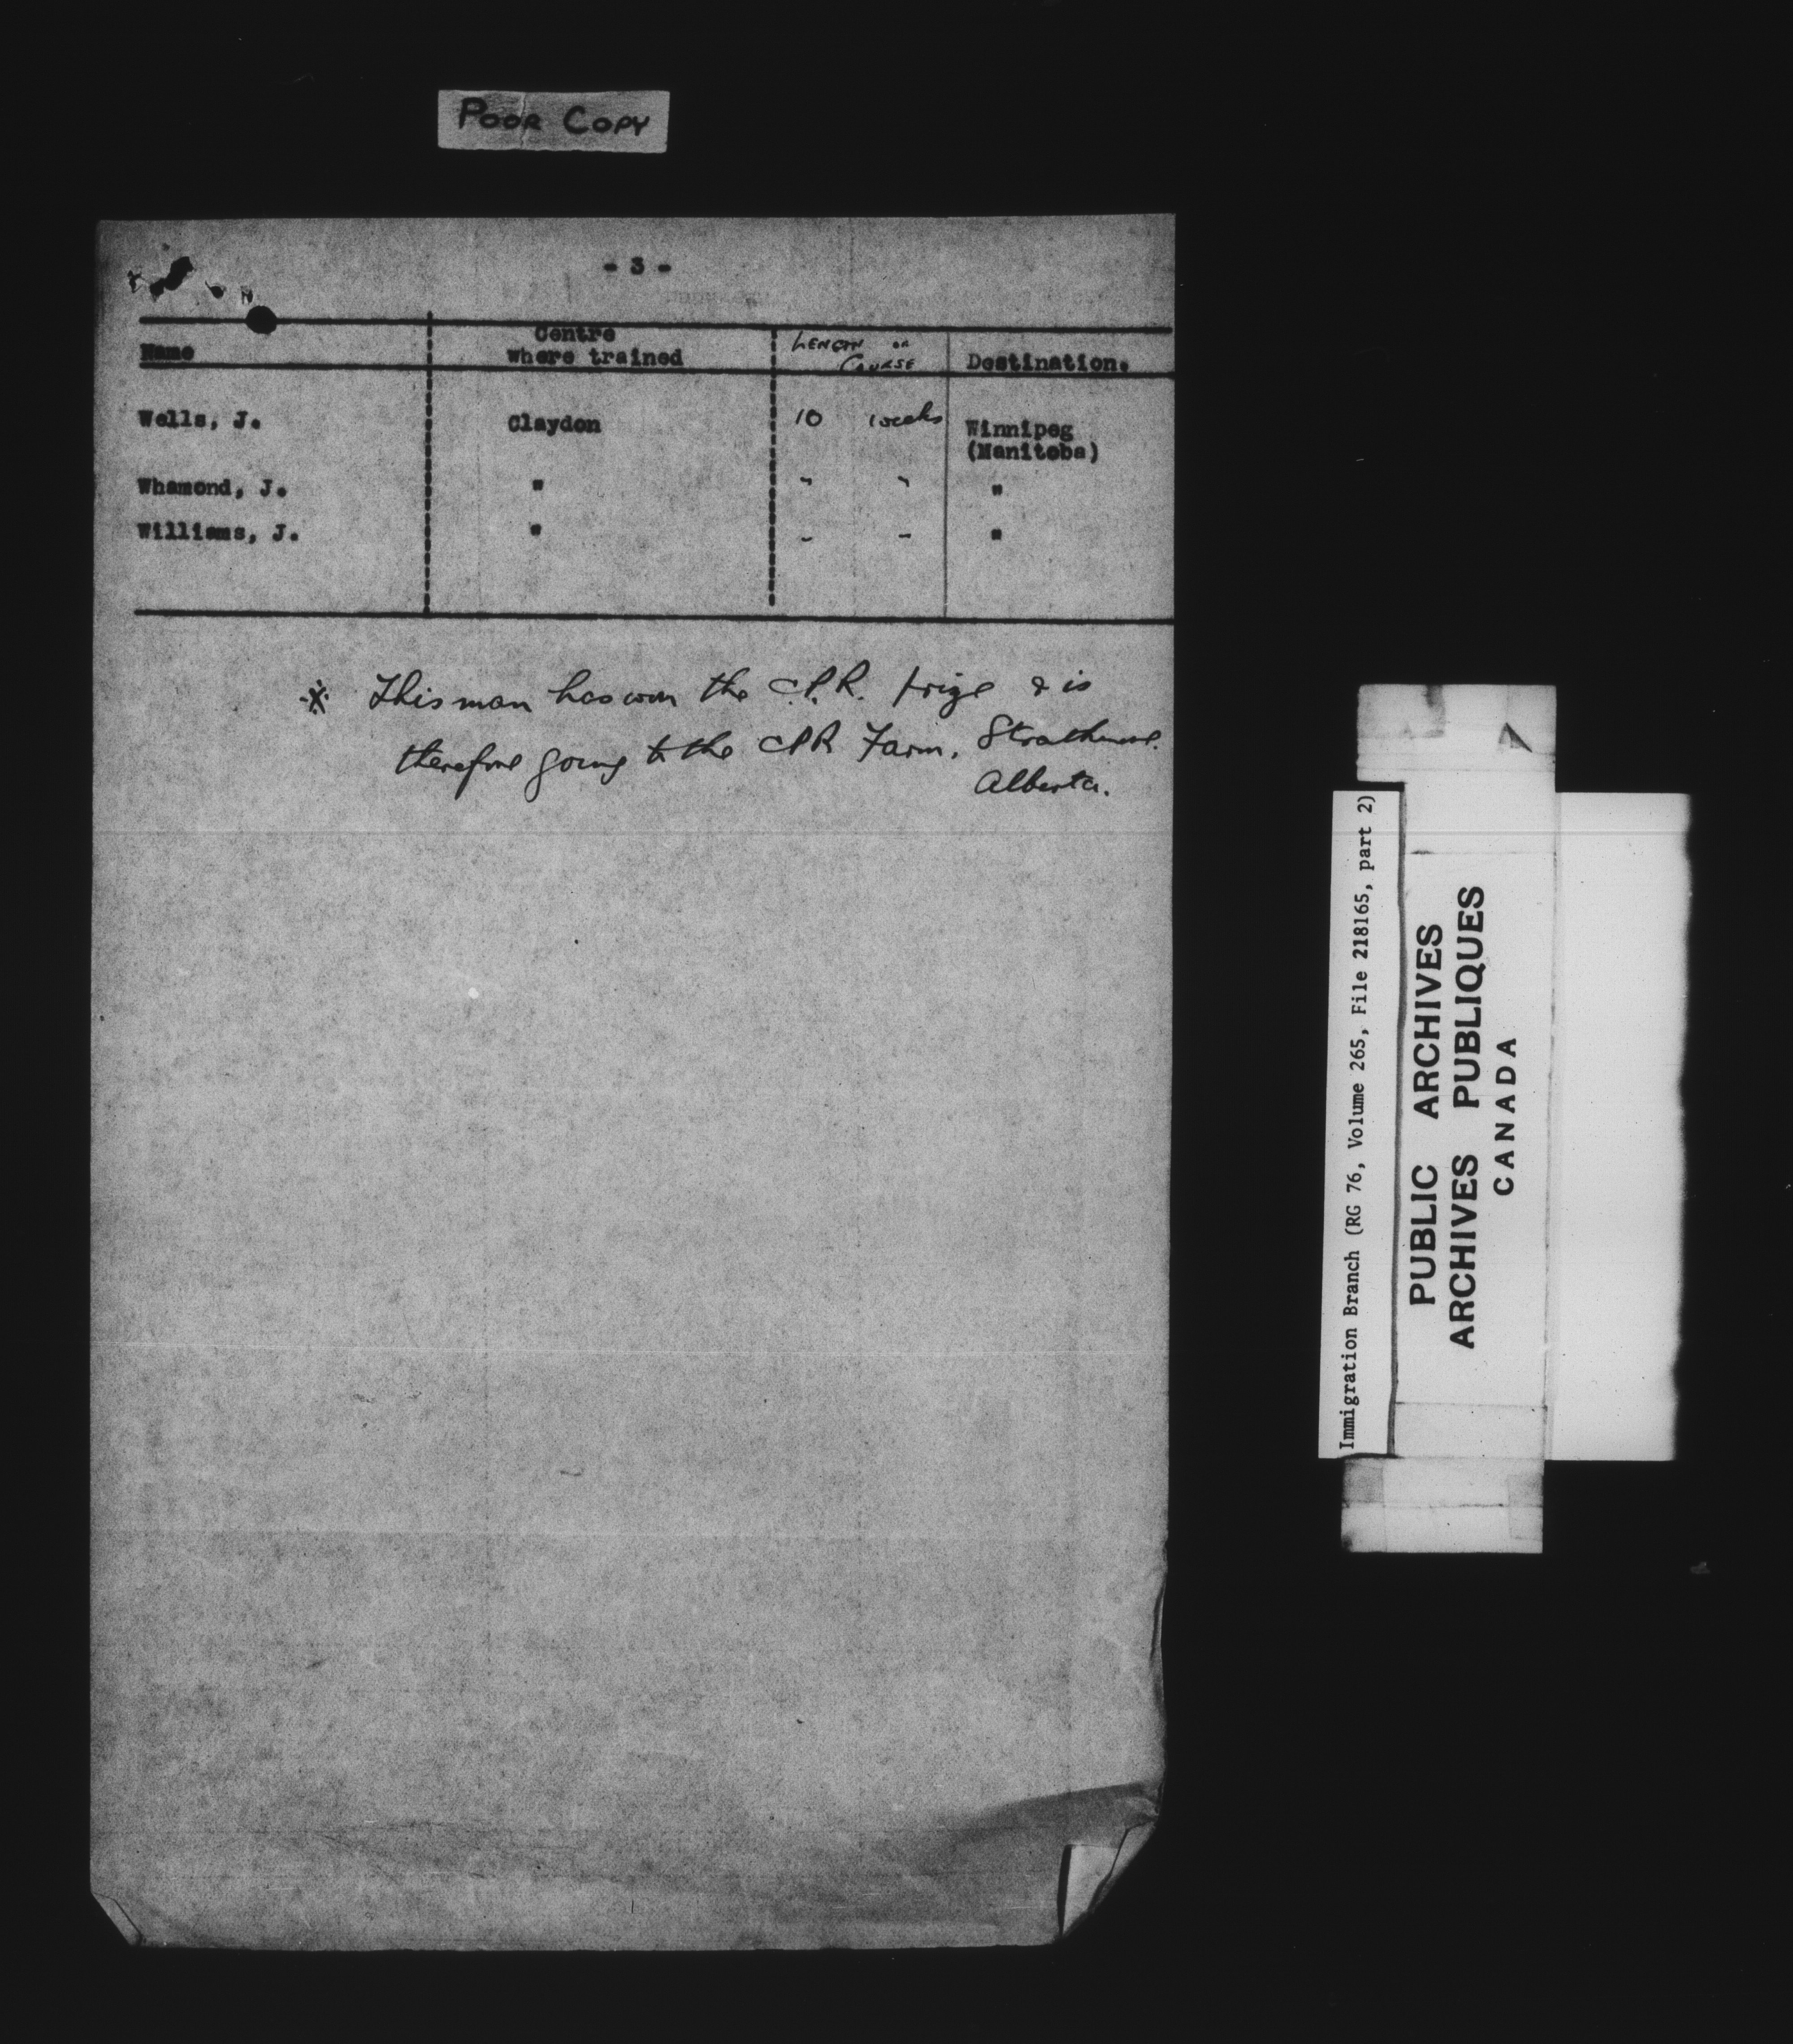 POOR COPY
- 3 -
Name
Centre
where trained
LENGTH OF
COURSE
Destination.
Wells, J. Claydon 10 weeks Winnipeg
(Manitoba)
Whamond, J. " " " "
Williams, J. " " " "
※ This man has won the C.P.R. prize & is
therefore going to the CPR Farm. Strathmore.
Alberta.
Immigration Branch (RG 76, Volume 265, File 218165, part 2)
PUBLIC ARCHIVES
ARCHIVES PUBLIQUES
CANADA